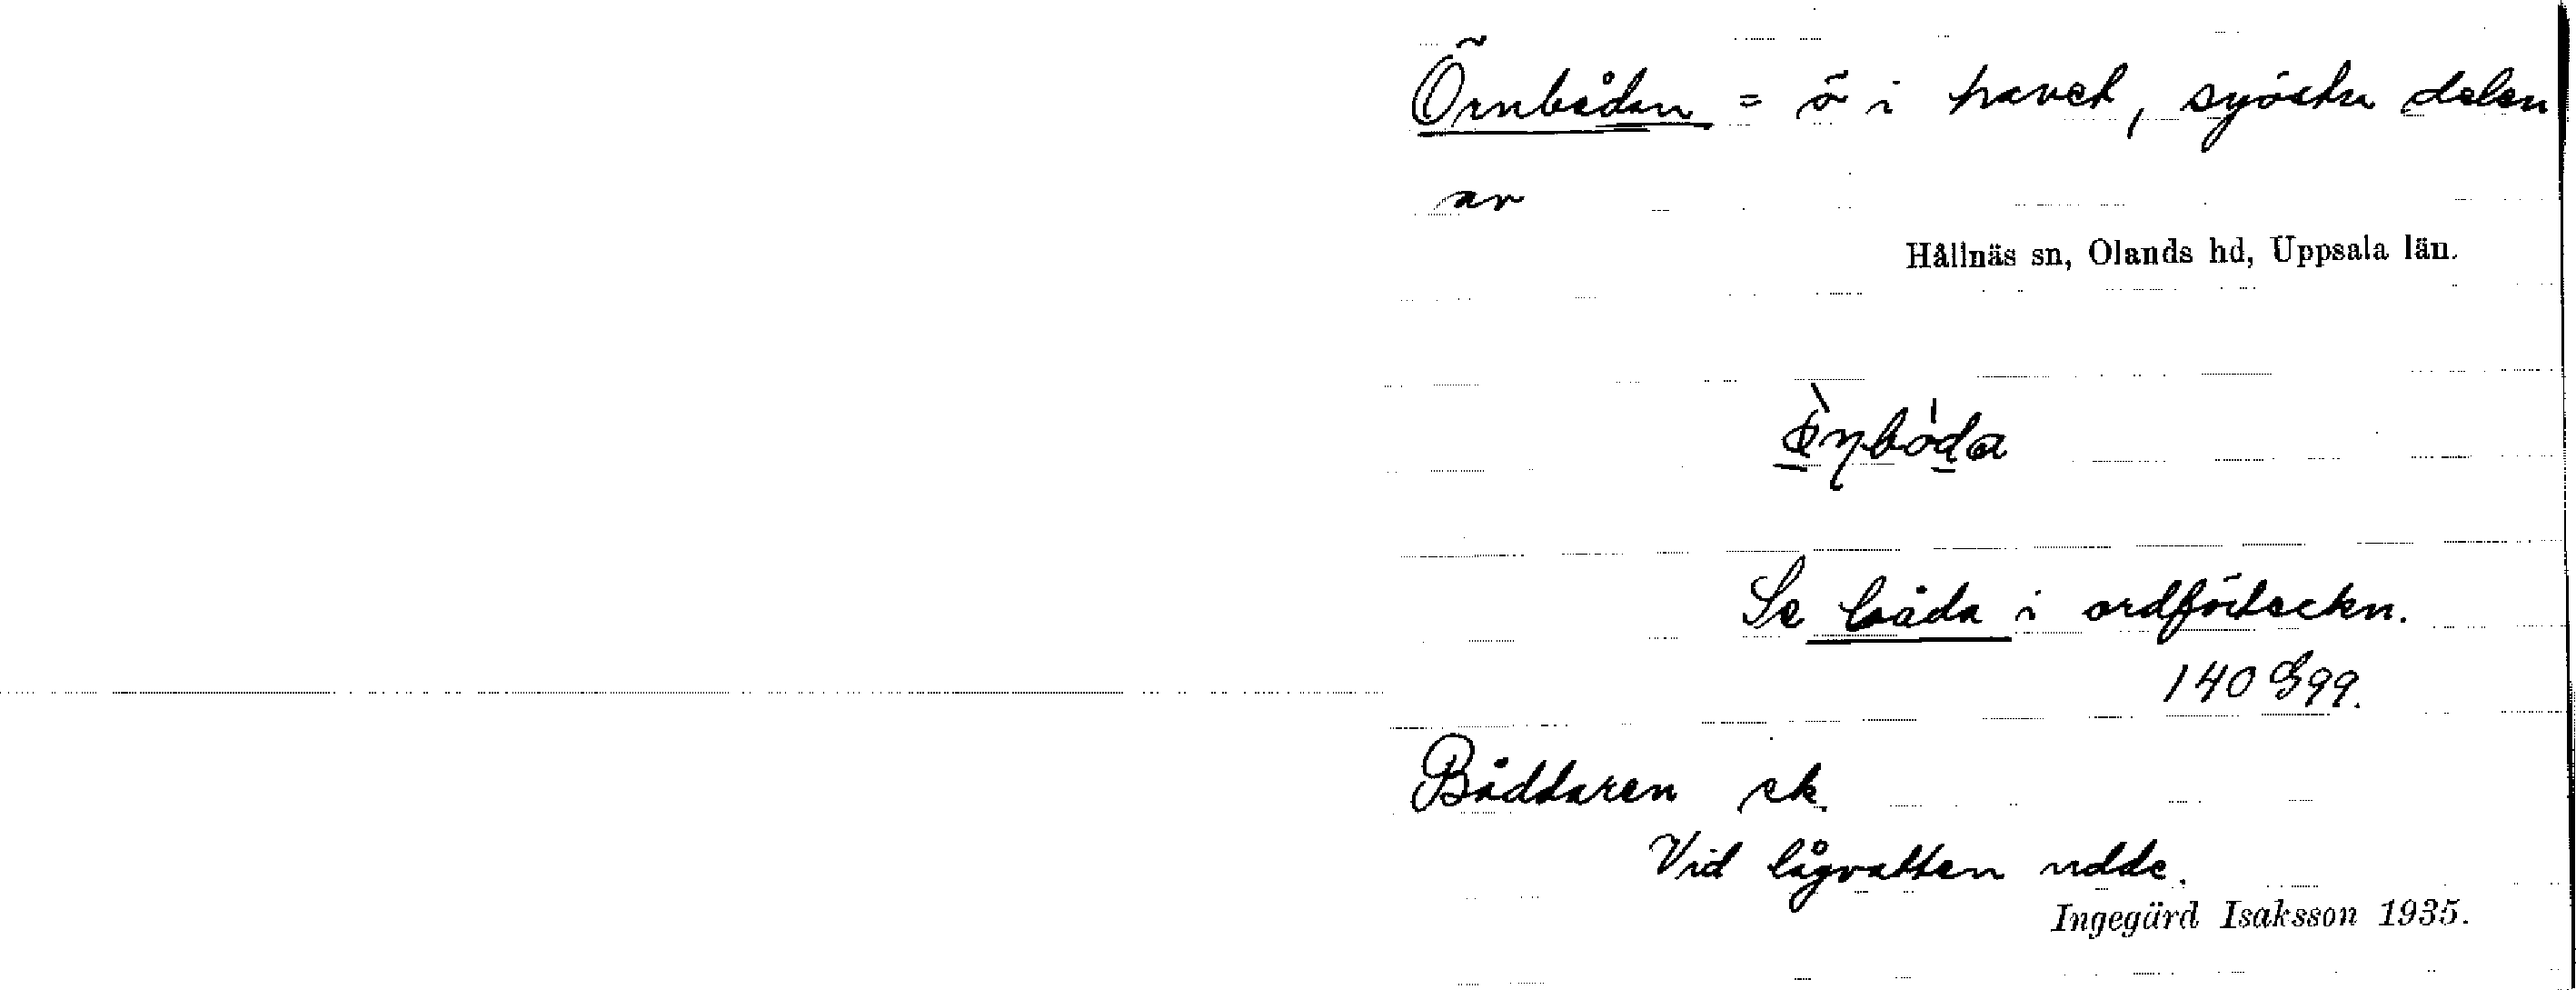 Örnbådan = ö i havet, syöstra delen
av
Hållnäs sn, Olands hd, Uppsala län.
Se båda i ordförteckn.
140 G 99.
Båddaren ek.
Vid lågvatten udde.
Ingegärd Isaksson 1935.